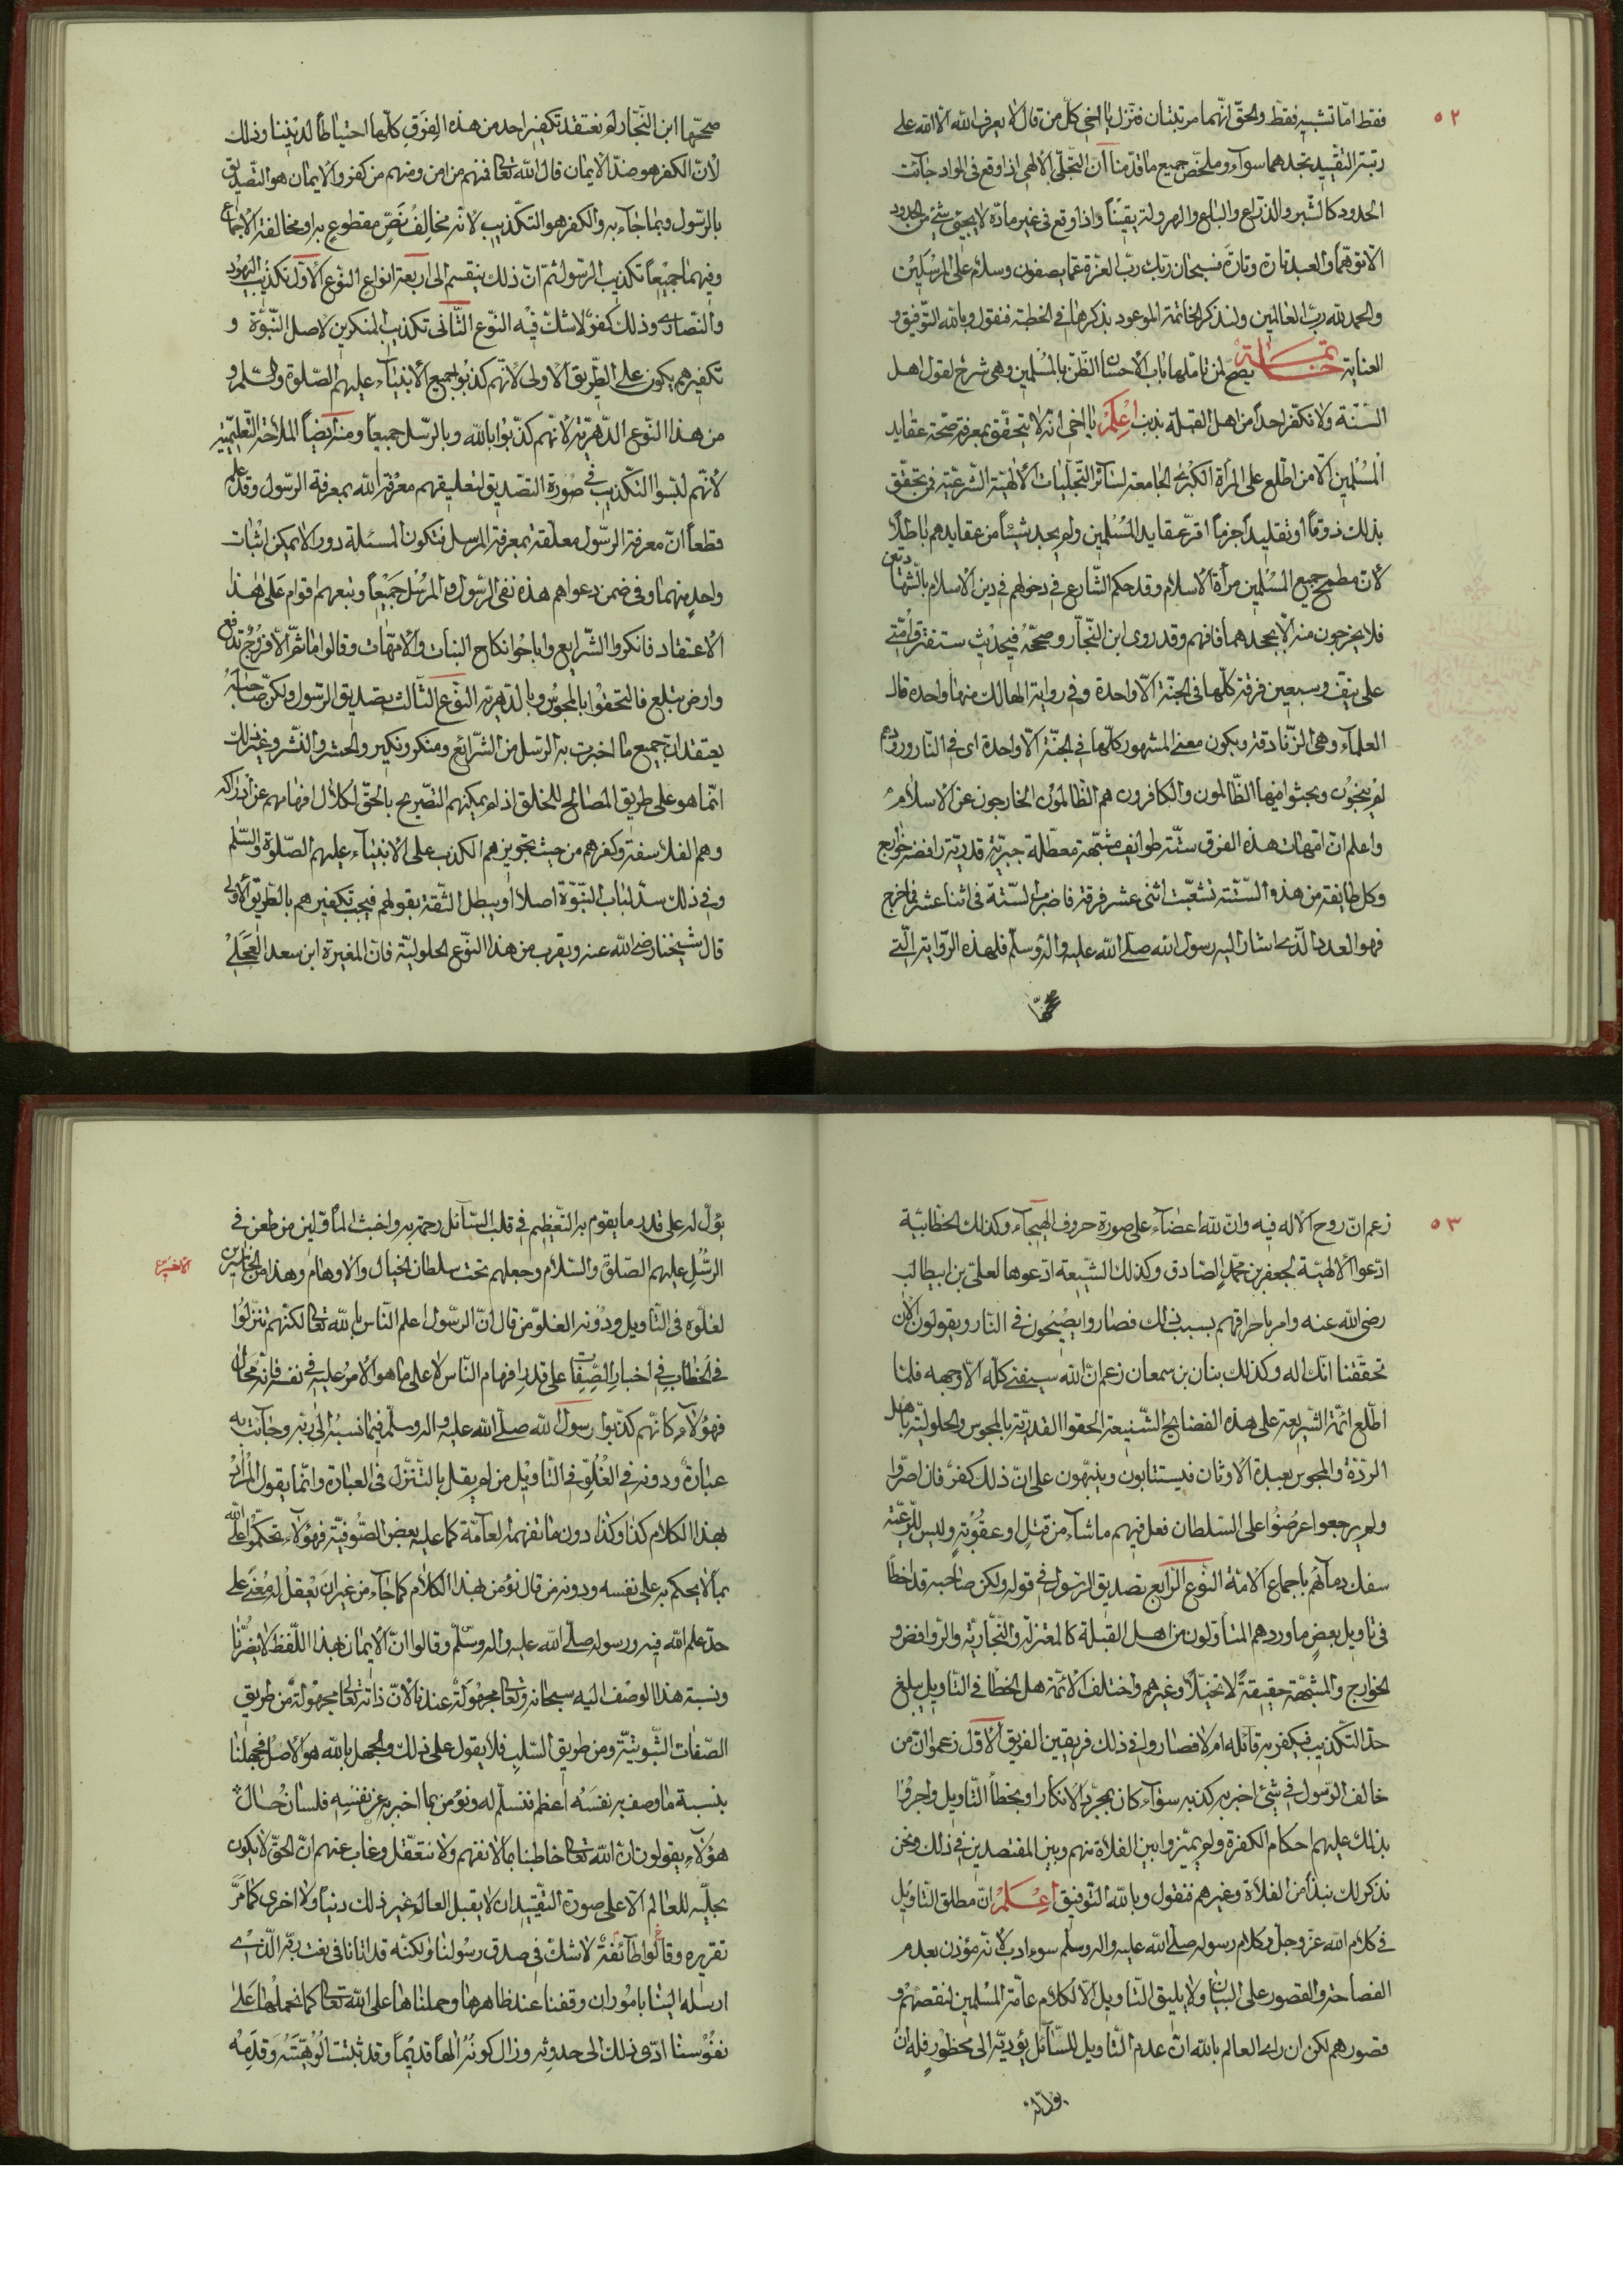 ٥٢
فقط امّا تشبيه فقط والحقّ انّهما مرتبتان فنزل يا اخي كلّ من قال لا يعرف الله الّا الله على
رتبة التقييد تجدهما سوآء وملخّص جميع ما قدّمنا انّ التّجلّي الالهي اذا وقع في المواد جآئت
الحدود كالشبر والذّراع والباع والهرولة يقيناً واذا وقع في غير مادّة لا يحق شئ من الحدود
الّا توهّماً والعبد تارة وتارة فسبحان ربّك ربّ العزّة عمّا يصفون وسلام على المرسلين
والحمد لله ربّ العالمين ولنذكر الخاتمة الموعود بذكرها في الخطبة فنقول وبالله التّوفيق و
العناية خاتمة يصحّ لمن تأملها باب الاحسان الظّن بالمسلمين وهي شرح لقول اهل
السّنّة ولا نكفّر احداً من اهل القبلة بذنب اعلم يا اخي انّه لا يتحقّق بمعرفة صحّة عقايد
المسلمين الّا من اطّلع على المرآة الكبرى الجامعة لسائر التّجلّيات الالهيّة الشّرعيّة فمن تحقّق
بذلك ذوقاً او تقليداً جزماً اقرّ عقايد المسلمين ولم يجد شيئاً من عقايدهم باطلاً
لانّ مطمح جميع المسلمين مرآة الاسلام وقد حكم الشّارع في دخولهم في دين الاسلام بالشّهادتين
فلا يخرجون منه الّا بجحدهما فافهم وقد روى ابن النّجّار وصحّحه في حديث ستفترق امّتي
على نيف وسبعين فرقة كلّها في الجنّة الّا واحدة وفي رواية الهالك منها واحده قال
العلمآء وهي الزّنادقة ويكون معنى المشهور كلّها في الجنّة الّا واحدة اى في النّار ورودهم
لم ينجون وجثوا فيها الظّالمون والكافرون هم الظّالمون الخارجون عن الاسلام
واعلم انّ امّهات هذه الفرق ستّة طوايف مشبّهة معطّلة جبريّة قدريّة رافضة خوارج
وكل طايفة من هذه السّتّة تشعّبت اثنى عشر فرقة فاضرب السّتّة في اثنا عشر فما خرج
فهو العدد الّذى اشار اليه رسول الله صلّى الله عليه وآله وسلّم فلهذه الرّواية الّتي
صحّحها ابن النّجّار لم نعتقد تكفير احد من هذه الفرق كلّها احتياطاً لديننا وذلك
لانّ الكفر هو ضدّ الايمان قال الله تعالى فمنهم من امن ومنهم من كفر والايمان هو التّصديق
بالرّسول وبما جآء به والكفر هو التكذيب لانّه مخالف نصّ مقطوع به او مخالفة الاجماع
وفيهما جميعاً تكذيب الرّسول ثمّ انّ ذلك ينقسم الى اربعة انواع النّوع الاوّل تكذيب اليهود
والنّصارى وذلك كفر لا شكّ فيه النّوع الثّانى تكذيب المنكرين لاصل النّبوّة و
تكفيرهم يكون على الطّريق الاولى لانّهم كذبوا جميع الانبيآء عليهم الصّلوة والسّلم و
من هذا النّوع الدّهريّة لانّهم كذّبوا بالله وبالرّسل جميعاً ومنه ايضاً الملاحدة التّعليميّة
لانّهم لبّسوا التّكذيب في صورة التصديق لتعليقهم معرفة الله بمعرفة الرّسول وقد علم
قطعاً انّ معرفة الرّسول معلّقة بمعرفة المرسل فتكون المسئلة دور لا يمكن اثبات
واحد منهما وفى ضمن دعواهم هذه نفى الرّسول والمرسل جميعاً وتبعهم اقوام على هذا
الاعتقاد فانكروا الشّرايع واباحوا نكاح البنات والامّهات وقالوا ما ثمّ الّا فروج تدفع
وارض تبلع فالتحقوا بالمجوس وبالدّهريّة النّوع الثّالث بصديق الرّسول ولكن صاحبه
يعتقد انّ جميع ما اخبرت به الرّسل من الشّرائع ومنكر ونكير والحشر والنّشر وغير ذلك
انّما هو على طريق المصالح للخلق اذ لم يمكنهم التّصريح بالحقّ لكلال افهامهم عن ادراكه
وهم الفلاسفة وكفرهم من حيث تجويزهم الكذب على الانبيآء عليهم الصّلوة والسّلم
وفى ذلك سدّ لباب النّبوّة اصلاً ويبطل الثّقة بقولهم فيجب تكفيرهم بالطّريق الاولى
قال شيخنا رضى الله عنه ويقرب من هذا النّوع الحلوليّة فانّ المغيرة ابن سعد العجلى
٥٣
زعم انّ روح الاله فيه وانّ لله اعضآء على صورة حروف الهجآء وكذلك الخطّابيّة
ادّعوا الالهيّة لجعفر بن محمّد الصّادق وكذلك الشّيعة ادّعوها لعلىّ بن ابيطالب
رضى الله عنه وامر باحراقهم بسبب ذلك فصاروا يصيحون فى النّار ويقولون الآن
تحقّقنا انّك اله وكذلك بنان بن سمعان زعم انّ الله سيفنى كلّه الّا وجهه فلمّا
اطّلع ائمّة الشّريعة على هذه الفضايح الشّنيعة الحقوا القدريّة بالمجوس والحلوليّة باهل
الردّة والمجوس بعبدة الاوثان فيستتابون وينبّهون على انّ ذلك كفر فان اصرّوا
ولم يرجعوا عرضوا على السّلطان فعل فيهم ما شآء من قتل او عقوبة وليس للرّعيّة
سفك دمآئهم باجماع الامّة النّوع الرّابع تصديق الرّسول فى قوله ولكن صاحبه قد اخطأ
فى تأويل بعض ما ورد هم المتأوّلون من اهل القبلة كالمعتزلة والنّجّاريّة والرّوافض و
الخوارج والمشبّهة حقيقةً لا تخيّلاً وغيرهم واختلف الائمّة هل الخطأ فى التّأويل يبلغ
حدّ التّكذيب فيكفر به قآئله ام لا فصاروا فى ذلك فريقين الفريق الاوّل زعموا انّ من
خالف الرّسول فى شئ اخبر به كذبه سوآء كان بمجرّد الانكار او بخطأ التّأويل واجروا
بذلك عليهم احكام الكفرة ولم يميّزوا بين الغلاة منهم وبين المقتصدين فى ذلك ونحن
نذكر لك نبذا من الغلاة وغيرهم فنقول وبالله التّوفيق اعلم انّ مطلق التّأويل
فى كلام الله عزّ وجلّ وكلام رسوله صلّى الله عليه وآله وسلّم سوء ادب لانّه مؤذن بعدم
الفصاحة والقصور على البيان ولا يليق التّأويل الّا لكلام عامّة المسلمين لنقصهم و
قصورهم لكن ان راى العالم بالله انّ عدم التّأويل للسّآئل يؤديه الى محظور فله ان
يؤلّ له
يؤلّ له على قدر ما يقوم به التّعظيم فى قلب السّآئل رحمة به واخبث المأوّلين من طعن فى
الرّسل عليهم الصّلوة والسّلام وجعلهم تحت سلطان الخيال والاوهام وهذا من الخاسرين
لغلوّه فى التّأويل ودونه الغلوّ من قال انّ الرّسول اعلم النّاس بالله تعالى لكنّهم تنزّلوا
فى الخطاب فى اخبار الصّفات على قدر افهام النّاس لا على ما هو الامر عليه فى نفسه فانّه محال
فهؤلآء كانّهم كذّبوا رسول الله صلّى الله عليه وآله وسلّم فيما نسبه الى ربّه وجآئت به
عبارة ودونه فى الغلوّ فى التّأويل من لم يقل بالتّنزّل فى العبارة وانّما يقول المراد
بهذا الكلام كذا وكذا دون ما تفهمه العآمّة كما عليه بعض الصّوفيّة فهؤلآء تحكّموا على الله
بما لا يحكم به على نفسه ودونه من قال نؤمن بهذا الكلام كما جآء من غير ان يعقل له معنى على
حدّ علم الله فيه ورسوله صلّى الله عليه وآله وسلّم وقالوا انّ الايمان بهذا اللّفظ لا يضرّنا
ونسبة هذا الوصف اليه سبحانه وتعالى مجهولة عندنا لانّ ذاته تعالى مجهولة من طريق
الصّفات الثّبوتيّة ومن طريق السّلب فلا يقول على ذلك والجهل بالله هو الاصل فجهلنا
بنسبة ما وصف به نفسه اعظم فنسلّم له ونؤمن بما اخبر به عن نفسه فلسان حال
هؤلآء يقولون انّ الله تعالى خاطبنا بما لا نفهم ولا نتعقّل وغاب عنهم انّ الحقّ لا يكون
تجلّيه للعالم الّا على صورة التقييد ان لا يقبل العالم غير ذلك دنيا ولا اخرى كما مرّ
تقريره وقالوا طآئفة لا شكّ فى صدق رسولنا ولكنّه قد اتانا فى نعت ربّه الّذى
ارسله الينا بامور ان وقفنا عند ظاهرها وحملناها على الله تعالى كما نحملها على
نفوسنا ادّى ذلك الى حدوثه وزال كونه الهاً قديماً وقد ثبتت الوهيّته وقدمه